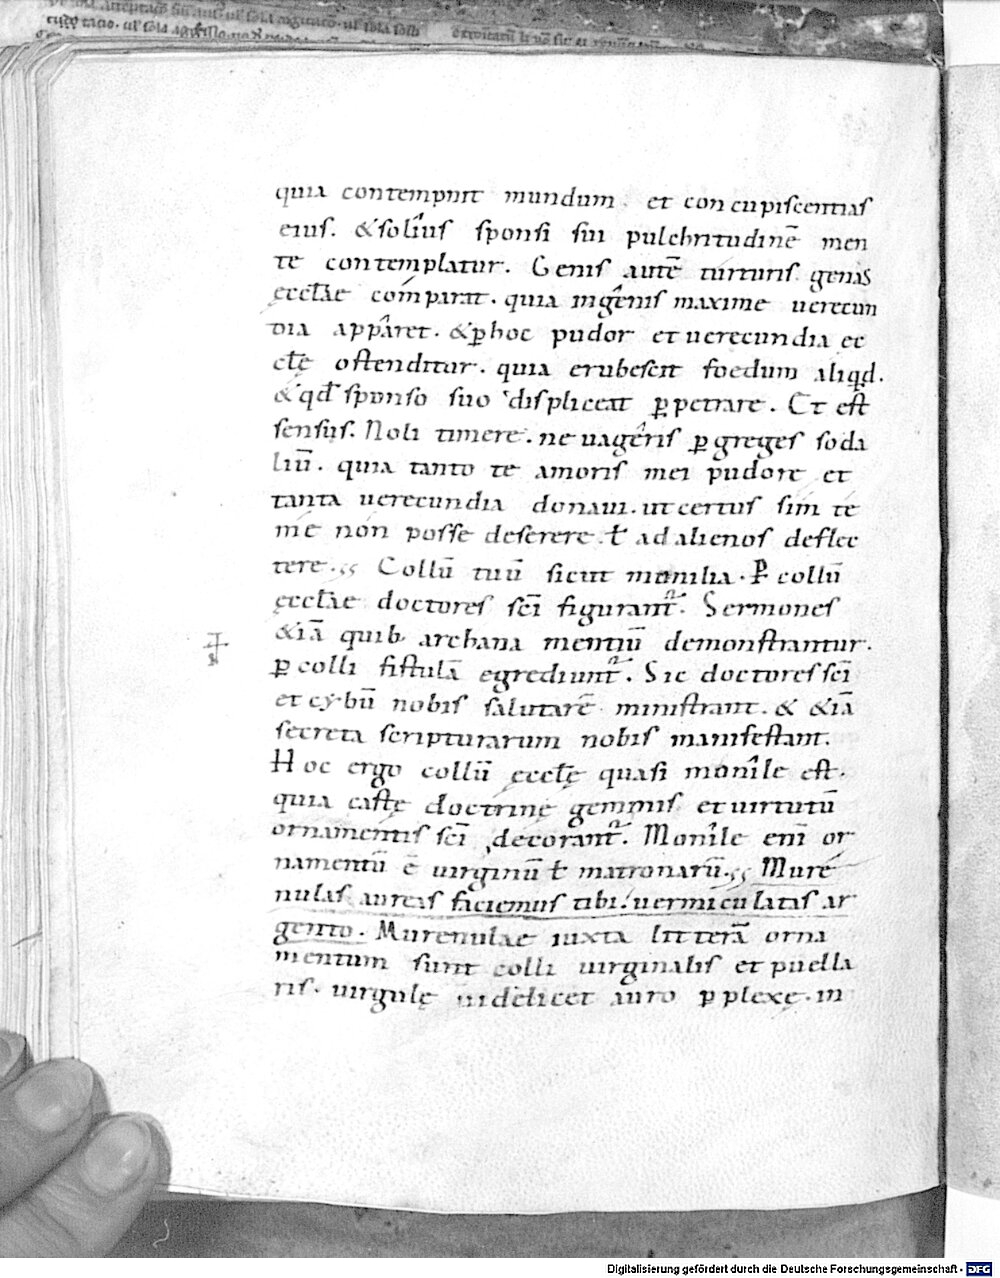 quia contempnit mundum. et concupiscentias
eius. & soliuˢ sponsi sui pulchritudinē men
te contemplatur. Genis autē turturis genas
ęcclae comparat. quia in genis maxime uerecun
dia apparet. & p hoc pudor et uerecundia ec
clę ostenditur. quia erubescit foedum aliqd.
& qd sponso suo displiceat ppetrare. Et est
sensus. Noli timere. ne uageris p greges soda
liū. quia tanto te amoris mei pudore et
tanta uerecundia donaui. ut certus sim te
me non posse deserere ł ad alienos deflec
tere. Collū tuū sicut monilia. P collū
ęcclae doctores sci figurant. Sermones
&iā quib archana mentiū demonstrantur.
p colli fistulā egrediunt. Sic doctores sci
et cybū nobis salutarē ministrant. & &iā
secreta scripturarum nobis manifestant.
Hoc ergo collū ęcclę quasi monile est.
quia castę doctrinę gemmis et uirtutū
ornamentis sci decorant. Monile eni or
namentū ē uirginū ł matronarū. Mure
nulas aureas faciemus tibi. uermiculatas ar
gento. Murenulae iuxta litterā orna
mentum sunt colli uirginalis et puella
ris. uirgulę uidelicet auro pplexę. in
Digitalisierung gefördert durch die Deutsche Forschungsgemeinschaft - DFG